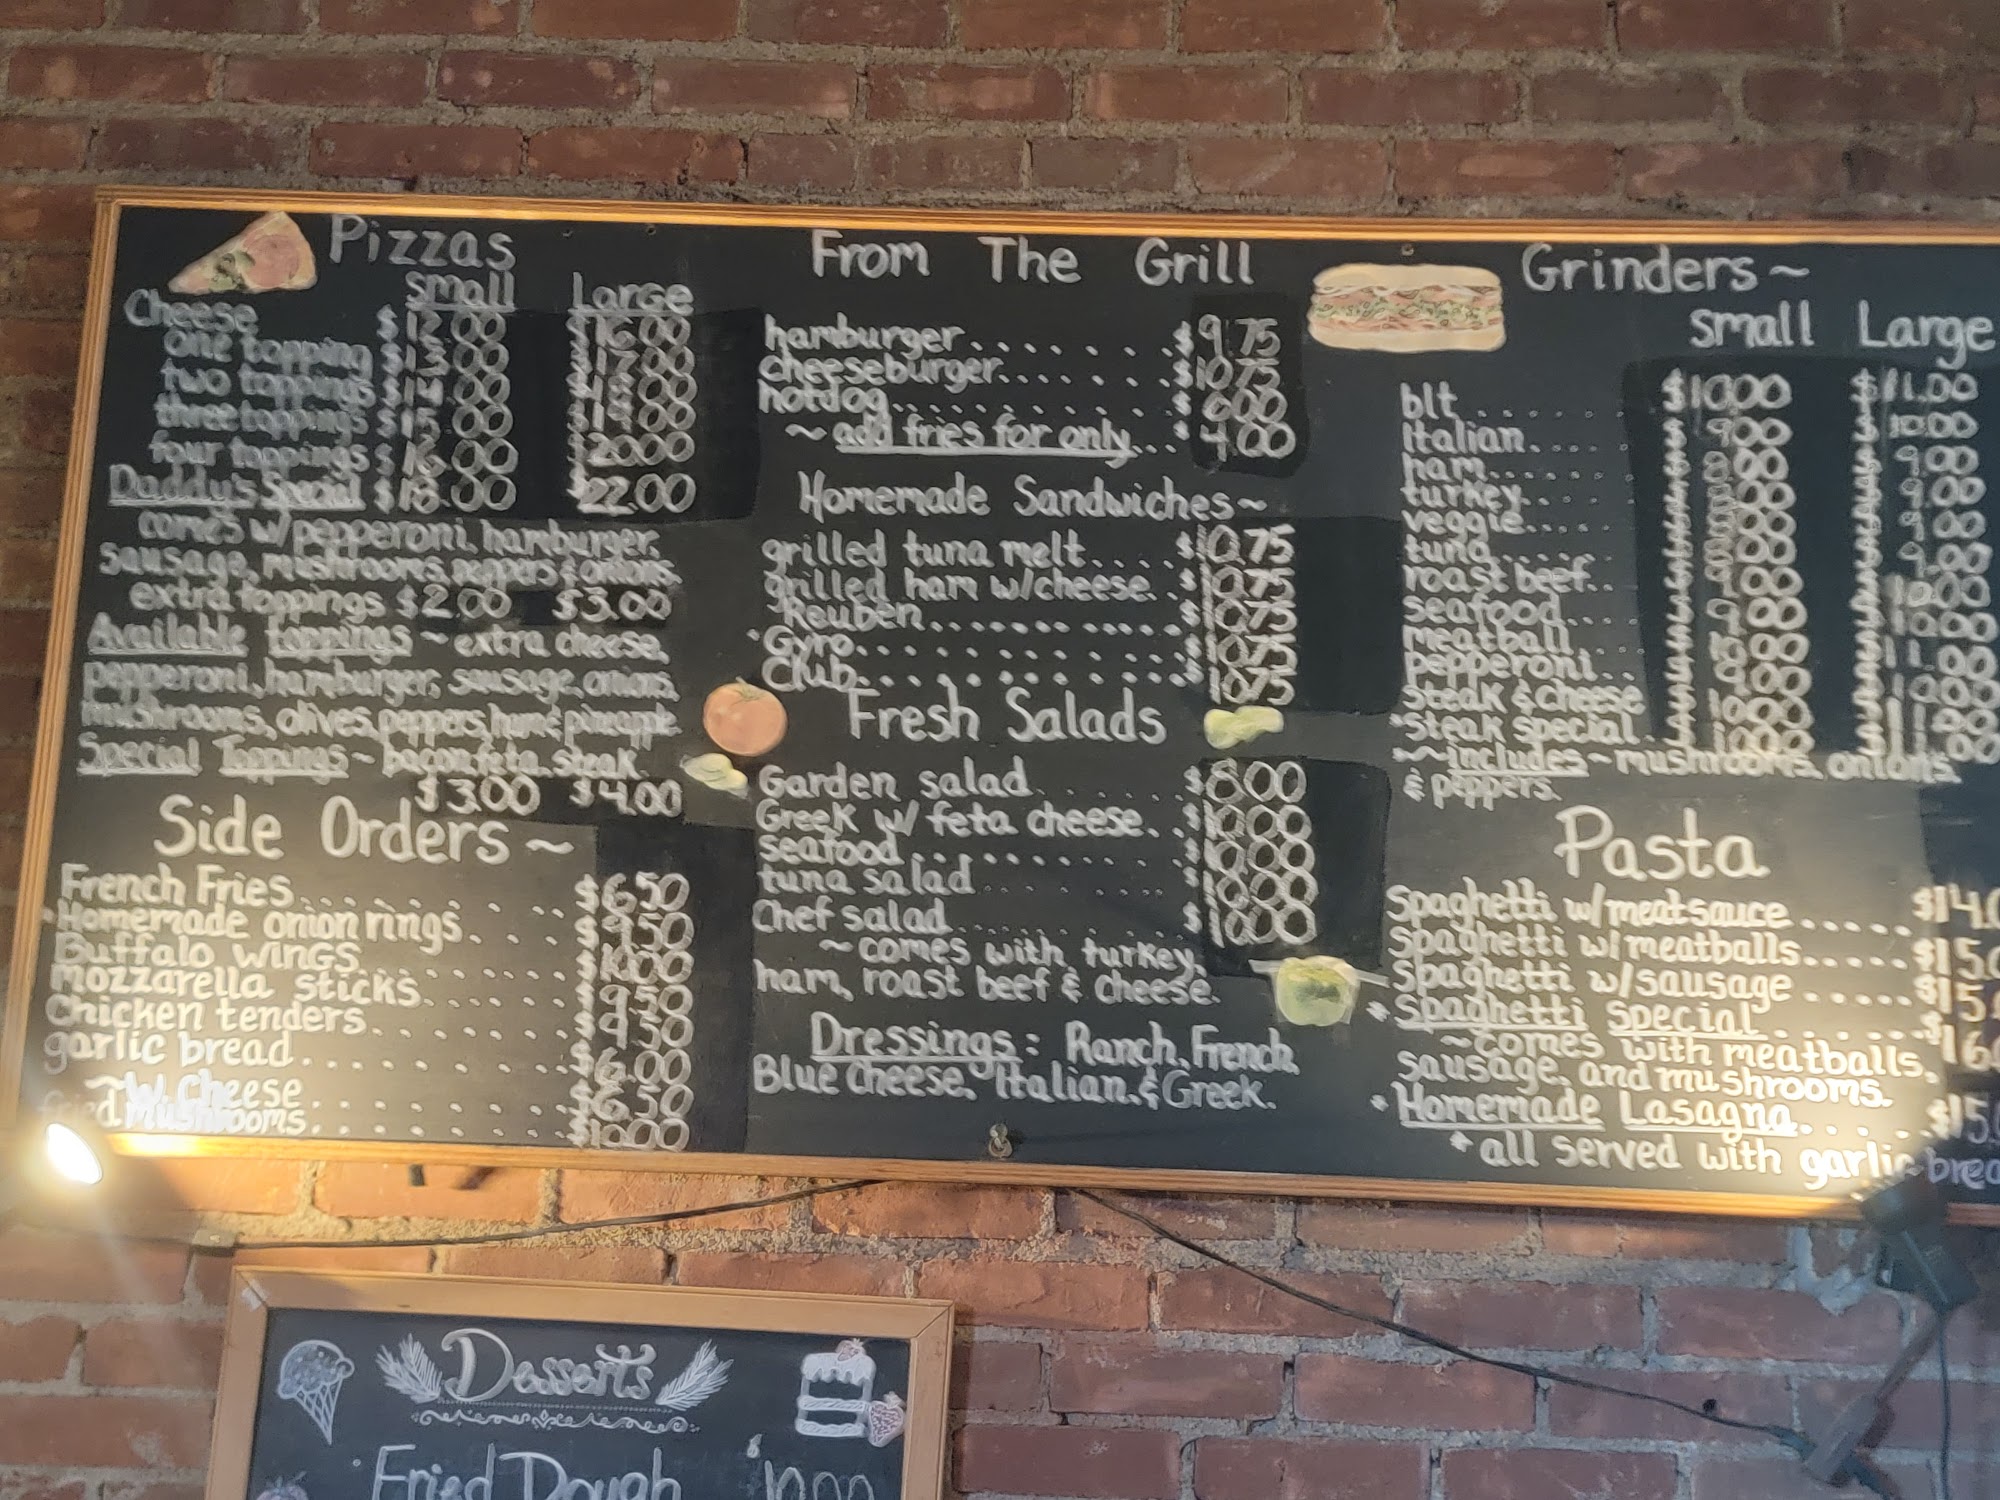 Pizzas
Small Large
Cheese $12.00 $16.00
one topping $13.00 $17.00
two toppings $14.00 $18.00
three toppings $15.00 $19.00
four toppings $16.00 $20.00
Daddy's Special $18.00 $22.00
comes w/ pepperoni, hamburger,
sausage, mushrooms, peppers & onions.
extra toppings $2.00 $3.00
Available toppings ~ extra cheese,
pepperoni, hamburger, sausage, onions,
mushrooms, olives, peppers, ham & pineapple
Special Toppings ~ bacon, feta, steak.
$3.00 $4.00
Side Orders ~
French Fries $6.50
Homemade onion rings $9.50
Buffalo wings $10.00
Mozzarella sticks $9.50
Chicken tenders $9.50
garlic bread $6.00
~ w/ cheese $6.50
fried Mushrooms $10.00
From The Grill
hamburger $9.75
cheeseburger $10.75
hotdog $6.00
~ add fries for only $4.00
Homemade Sandwiches ~
grilled tuna melt $10.75
grilled ham w/cheese 10.75
Reuben 10.75
Gyro 10.75
Club 10.75
Fresh Salads
Garden salad $8.00
Greek w/ feta cheese $10.00
seafood $10.00
tuna salad $10.00
Chef salad $10.00
~ comes with turkey,
ham, roast beef & cheese.
Dressings: Ranch, French,
Blue Cheese, Italian, & Greek.
Grinders ~
small Large
blt $10.00 $11.00
Italian 9.00 10.00
ham 8.00 9.00
turkey 8.00 9.00
veggie 8.00 9.00
tuna 8.00 9.00
roast beef 9.00 10.00
seafood 9.00 10.00
meatball 10.00 11.00
pepperoni 9.00 10.00
Steak & Cheese 10.00 11.00
*Steak special
*~ includes ~ mushrooms, onions,
& peppers.
Pasta
Spaghetti w/ meatsauce $14.0
Spaghetti w/ meatballs $15.0
Spaghetti w/sausage $15.
* Spaghetti Special $16.
~ comes with meatballs,
sausage, and mushrooms.
* Homemade Lasagna $15.
* all served with garlic brea
Desserts
Fried Dough $10.00